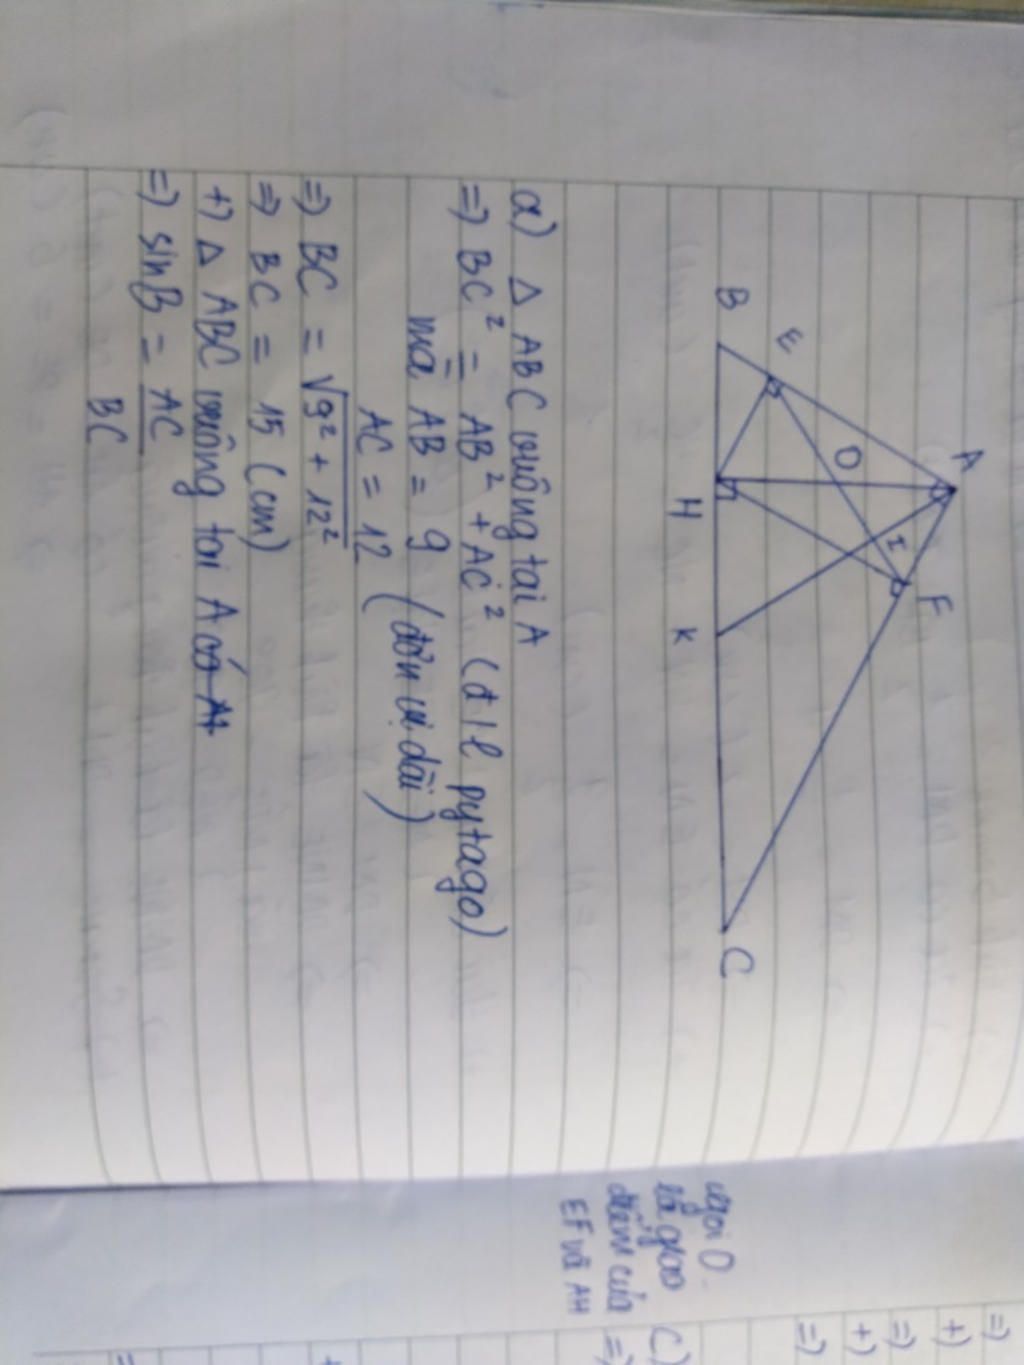 A
E
F
O
I
B
H
K
C
a) Δ ABC vuông tại A
=) BC² = AB² + AC² (đ/l pytago)
mà AB = 9
AC = 12 (đơn vị dài)
=) BC = √9² + 12²
=) BC = 15 (cm)
+) Δ ABC vuông tại A có
=) sinB = AC
BC
gọi O
là giao
điểm của
EF và AH
=)
+)
=)
+)
=)
C)
=)